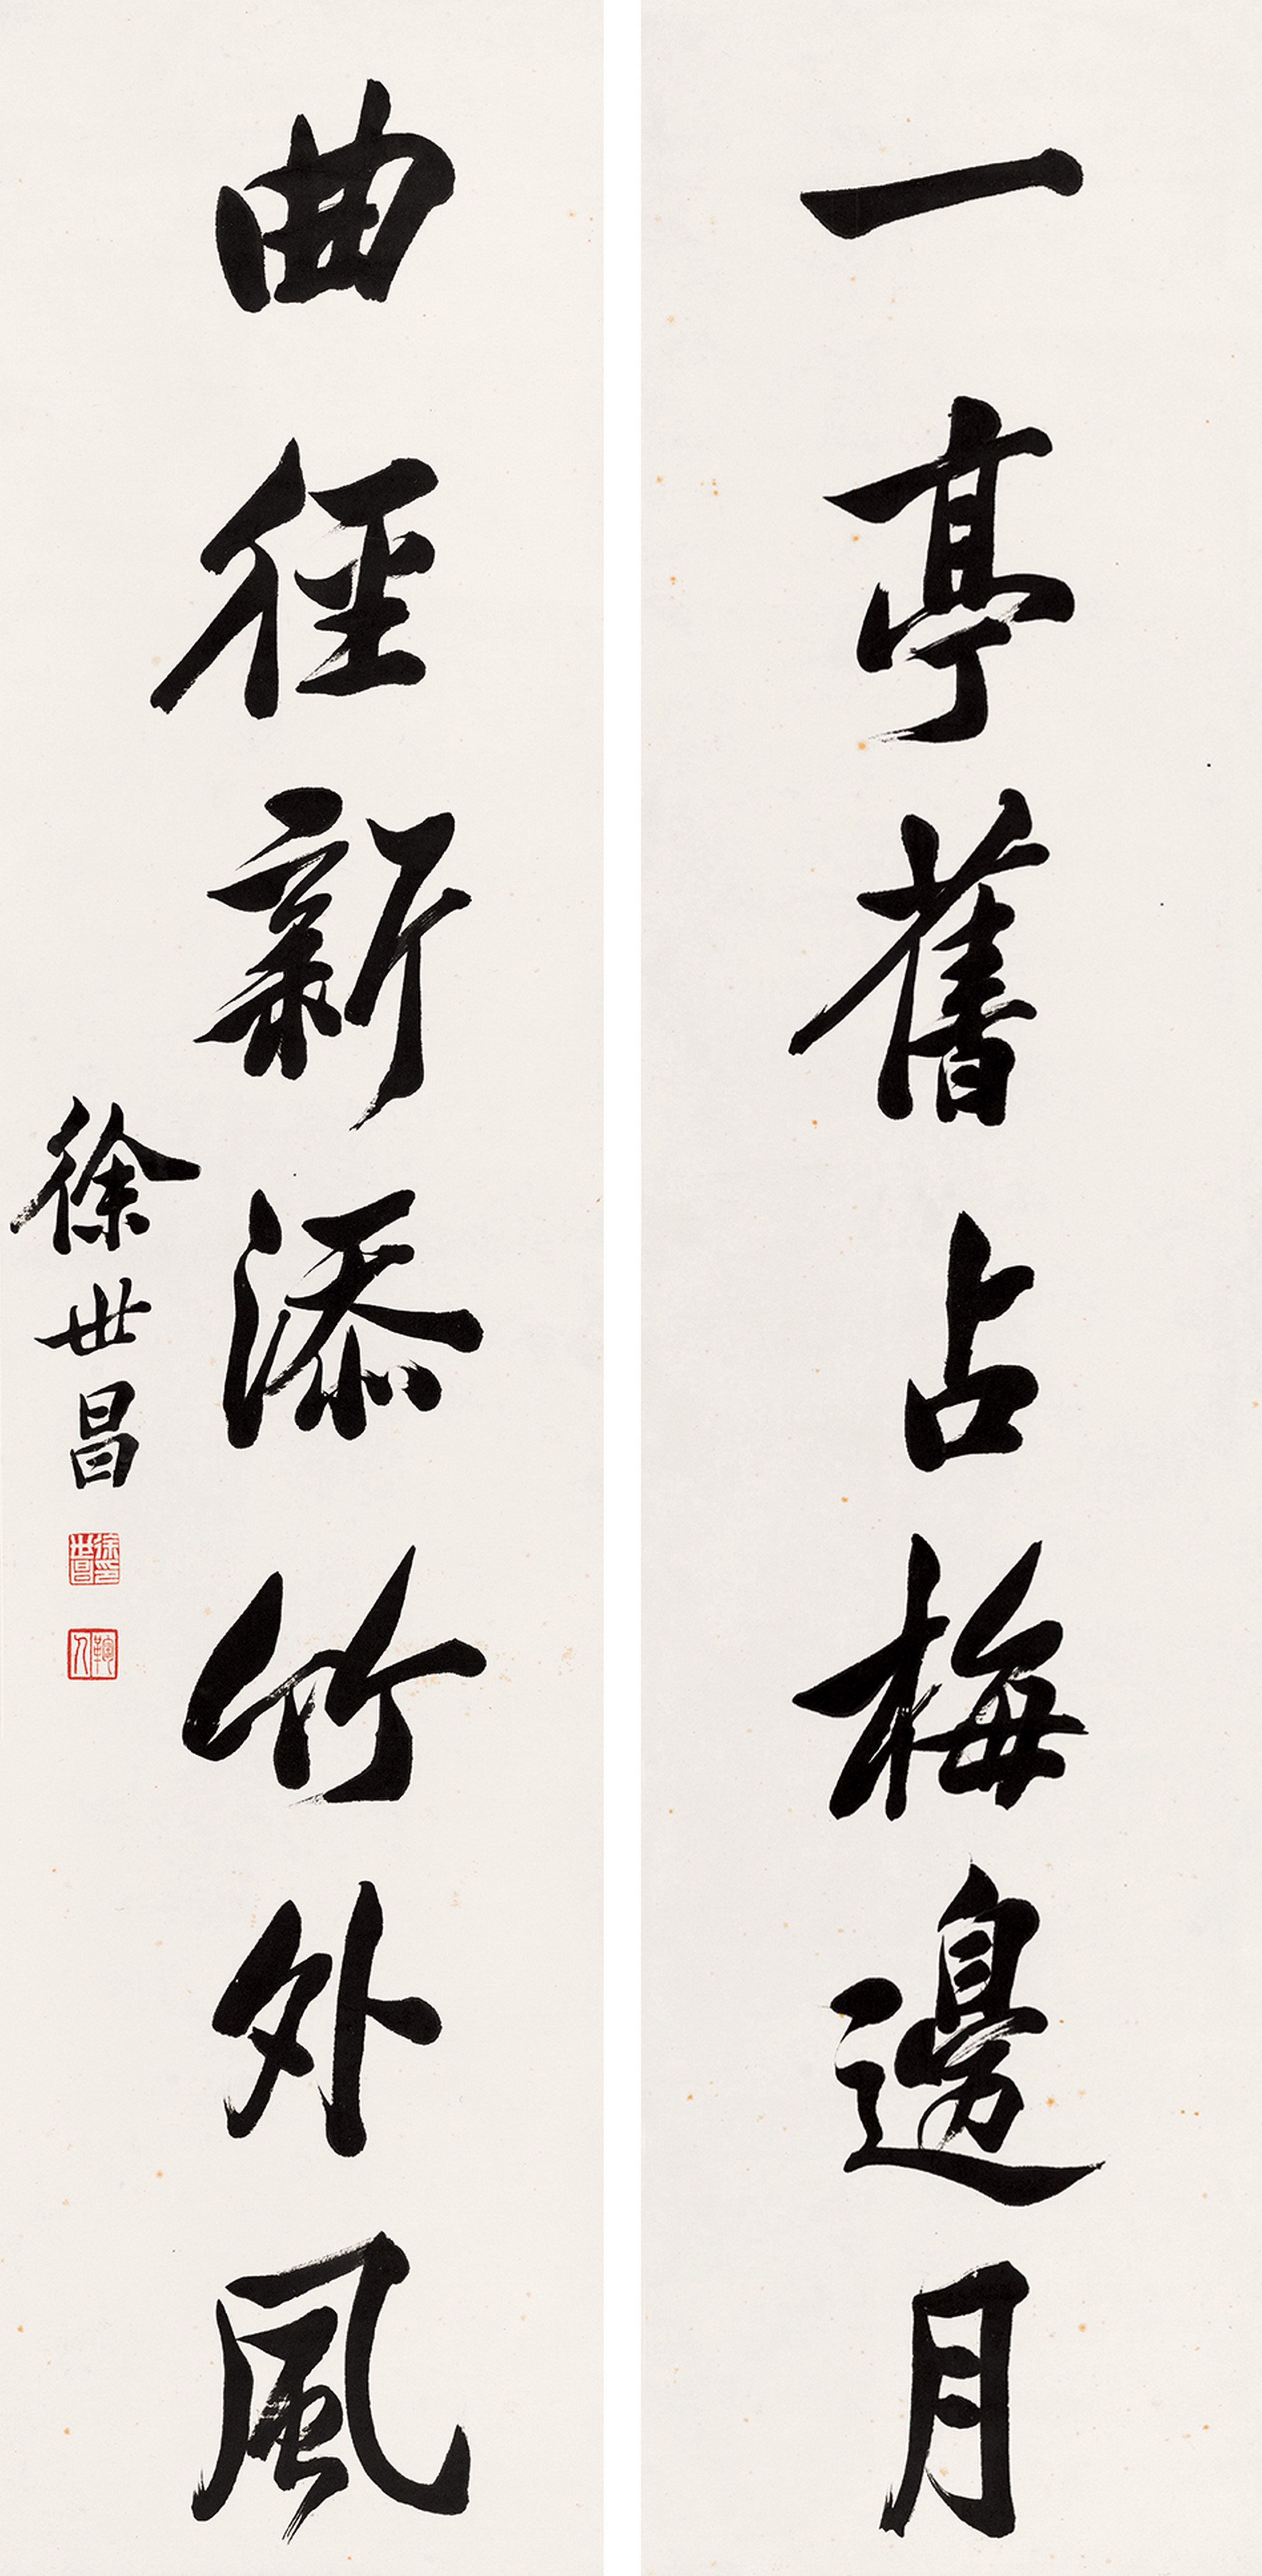 一亭舊占梅邊月
曲徑新添竹外風
徐世昌
徐世昌印
弢人